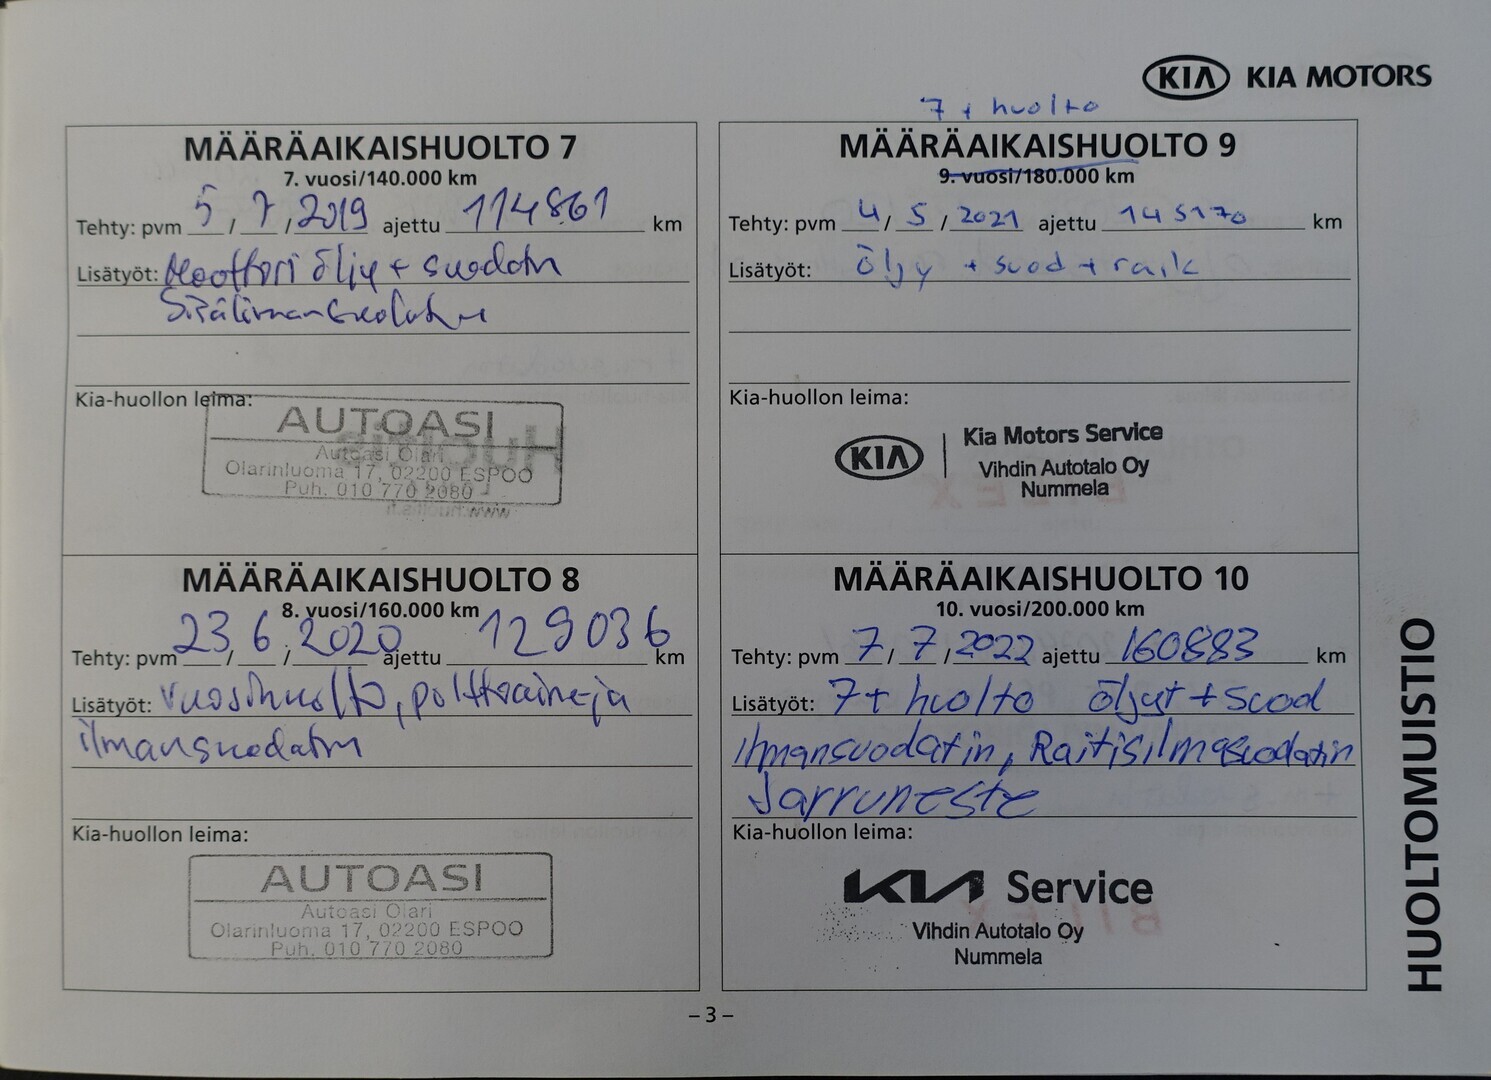 KIA KIA MOTORS
MÄÄRÄAIKAISHUOLTO 7
7. vuosi/140.000 km
Tehty: pvm 5 / 7 / 2019 ajettu 114861 km
Lisätyöt: Moottori öljy + suodatin
Kia-huollon leima:
AUTOASI
Autoasi Olari
Olarinluoma 17, 02200 ESPOO
Puh. 010 770 2080
MÄÄRÄAIKAISHUOLTO 8
8. vuosi/160.000 km
Tehty: pvm 23 / 6 / 2020 ajettu 129036 km
Lisätyöt: vuosihuolto, polttoaine-ja
ilmansuodatin
Kia-huollon leima:
AUTOASI
Autoasi Olari
Olarinluoma 17, 02200 ESPOO
Puh. 010 770 2080
7 + huolto
MÄÄRÄAIKAISHUOLTO 9
9. vuosi/180.000 km
Tehty: pvm 4 / 5 / 2021 ajettu 145170 km
Lisätyöt: öljy + suod + raik
Kia-huollon leima:
KIA Kia Motors Service
Vihdin Autotalo Oy
Nummela
MÄÄRÄAIKAISHUOLTO 10
10. vuosi/200.000 km
Tehty: pvm 7 / 7 / 2022 ajettu 160883 km
Lisätyöt: 7+ huolto öljyt + suod
Ilmansuodatin, Raitisilmasuodatin
Jarruneste
Kia-huollon leima:
KIA Service
Vihdin Autotalo Oy
Nummela
HUOLTOMUISTIO
– 3 –